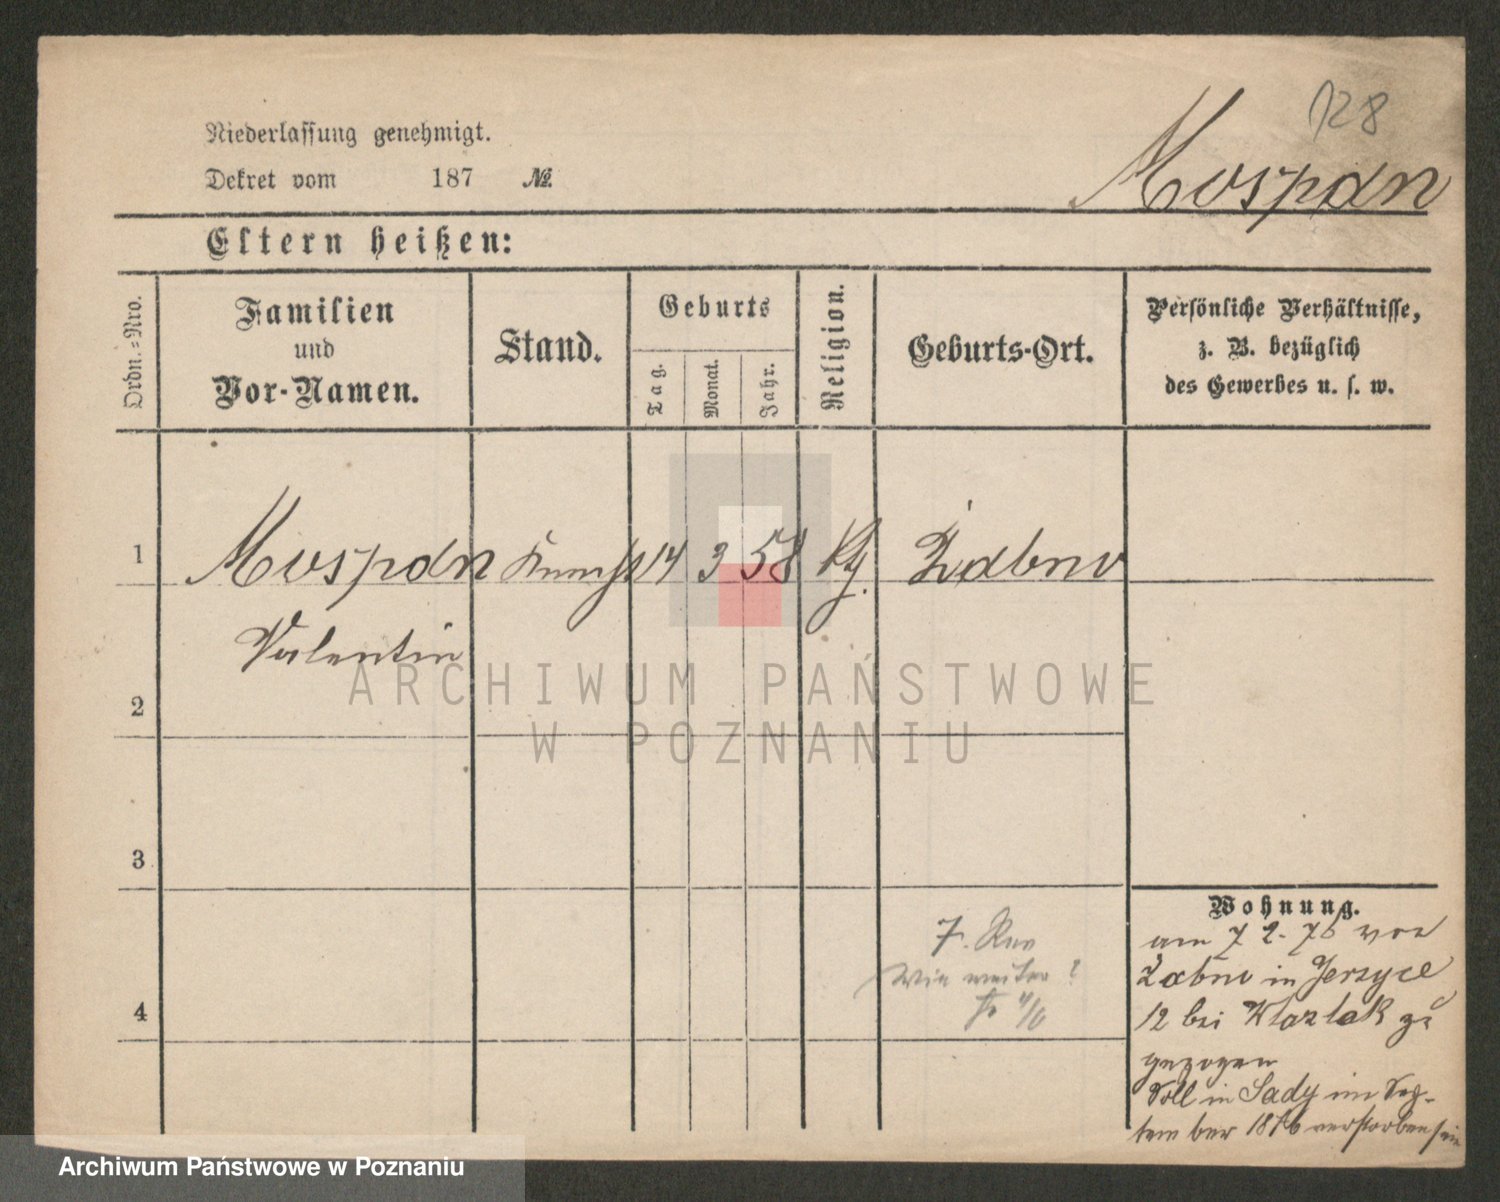 128
Niederlassung genehmigt.
Dekret vom 187 №.
Mospan
Eltern heißen:
Ordn.=Nro.
Familien
und
Vor-Namen.
Stand.
Geburts
Tag.
Monat.
Jahr.
Religion.
Geburts-Ort.
Persönliche Verhältnisse,
z. B. bezüglich
des Gewerbes u. s. w.
1 Mospan 14 3 58 Żabno
Valentin
2
3
4
7.
wie weiter?
Wohnung.
am 7 2. 76 von
Żabno in Jerzyce
12 bei Wlazlak zu
gezogen
Soll in Sady im Sep-
tember 1876 verstorben sein
ARCHIWUM PAŃSTWOWE
W POZNANIU
Archiwum Państwowe w Poznaniu